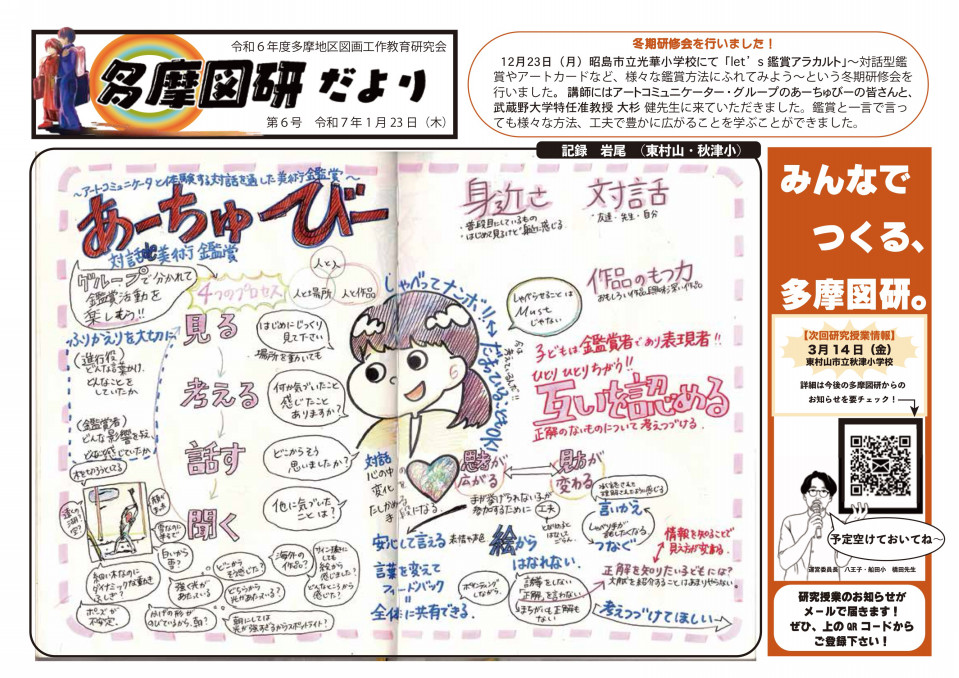 令和６年度多摩地区図画工作教育研究会
多摩図研だより
第６号　令和７年１月23日（木）
冬期研修会を行いました！
12月23日（月）昭島市立光華小学校にて「let’s鑑賞アラカルト」～対話型鑑
賞やアートカードなど、様々な鑑賞方法にふれてみよう～という冬期研修会を
行いました。講師にはアートコミュニケーター・グループのあーちゅびーの皆さんと、
武蔵野大学特任准教授 大杉 健先生に来ていただきました。鑑賞と一言で言っ
ても様々な方法、工夫で豊かに広がることを学ぶことができました。
記録　岩尾　（東村山・秋津小）
～アートコミュニケータと体験する対話を通した美術鑑賞～
あーちゅーびー
対話型美術鑑賞
グループで分かれて
鑑賞活動を
楽しもう!!
4つのプロセス
人と人
人と場所
人と作品
ふりかえりを大切に
(進行役)
どんな言葉かけ、
どんなことを
していたか。
(鑑賞者)
どんな影響を与え、
見る
はじめにじっくり
見て下さい
・場所を動いても
考える
何か気づいたこと
感じたこと
ありますか？
話す
どこからそう
思いましたか？
聞く
他に気づいた
ことは？
白いから
雪？
どこから
そう感じた？
海外の
作品？
サイン描きに
しても
絵から
感じました？
どんなところから
感じた？
細い木なのに
ダイナミックな動き
ふしぎ？
強く光が
あたっている
どちらから
光があたっている？
ポーズが
不安定。
かげの形が
のびているから、朝？
朝にしては
光が強すぎるからスポットライト？
しゃべってナンボ!!
だまっていることもOK!
身近さ
・普段目にしているもの
・はじめて見るけど身近に感じる
対話
・友達・先生・自分
作品のもつ力
おもしろい作品、興味深い作品
しゃべらせることは
Must
じゃない
子どもは鑑賞者であり表現者!!
ひとりひとりちがう!!
互いを認める
正解のないものについて考えつづける.
対話
心の中を
変化
たしかめる
手段になる.
思考が
広がる
見方が
変わる
手が挙げられない子が
参加するために
工夫
言いかえ
つなぐ
安心して言える
表情や声色
言葉を変えて
フィードバック
全体に共有できる.
絵から
はなれない.
ポインティング
しながら、
誤解をしない
「正解」を言わない
まちがいも正解も
ない
情報を知ることで
見え方が変わる.
正解を知りたい子どもには？
考えつづけてほしい
みんなで
つくる、
多摩図研。
【次回研究授業情報】
３月１４日（金）
東村山市立秋津小学校
詳細は今後の多摩図研からの
お知らせを要チェック！
予定空けておいてね～
運営委員長　八王子・船田小　橋田先生
研究授業のお知らせが
メールで届きます！
ぜひ、上のQRコードから
ご登録下さい！